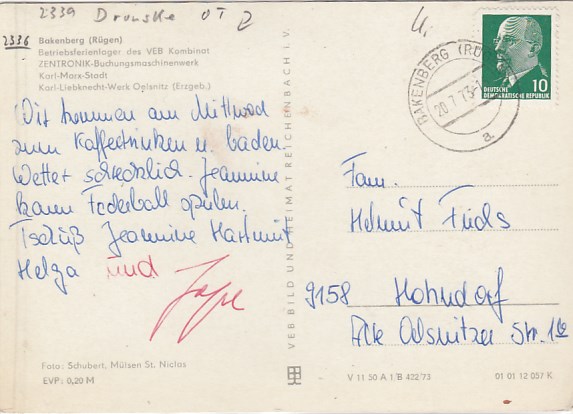 2339 Dranske OT 2
2336
Bakenberg (Rügen)
Betriebsferienlager des VEB Kombinat
ZENTRONIK-Buchungsmaschinenwerk
Karl-Marx-Stadt
Karl-Liebknecht-Werk Oelsnitz (Erzgeb.)
Wir kommen am Mittwoch
zum Kaffeetrinken u. baden.
Wetter schrecklich. Jeannine
kann Federball spielen.
Tschüß Jeannine Hartmut
Helga und
Foto: Schubert, Mülsen St. Niclas
EVP: 0,20 M
VEB BILD UND HEIMAT REICHENBACH i. V.
BAKENBERG (RÜGEN)
20.7.73
a
10
DEUTSCHE
DEMOKRATISCHE REPUBLIK
Fam.
Helmut Fuchs
9158 Hohndorf
Alte Oelsnitzer Str.
V 11 50 A 1/B 422/73
01 01 12 057 K